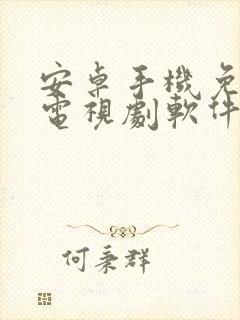 安卓手機免
電視劇軟件
何秉群